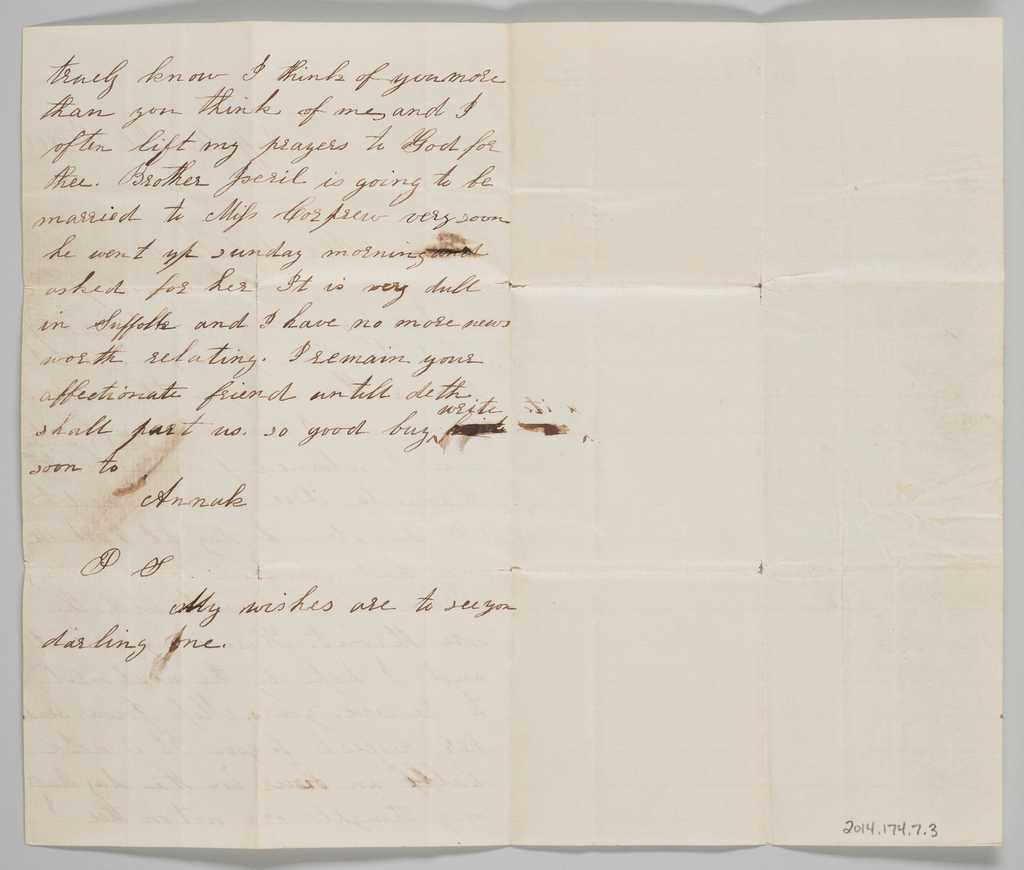 truely know I think of you more
than you think of me, and I
often lift my prayers to God for
thee. Brother Joeril is going to be
married to Miss Corprew very soon
he went up sunday morning and
asked for her It is very dull
in Suffolk and I have no more news
worth relating. I remain your
affectionate friend untill deth
shall part us. so good buy write
soon to
Annak
P S
My wishes are to see you
darling one.
2014.174.7.3